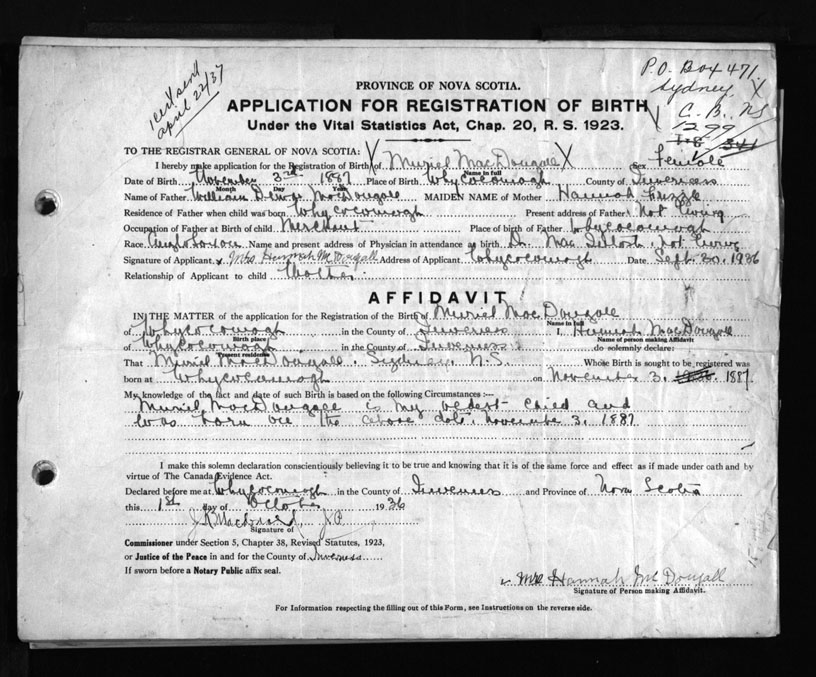 P.O. Box 471
Sydney
C. B., NS
1299
Cert sent
April 22/37
PROVINCE OF NOVA SCOTIA.
APPLICATION FOR REGISTRATION OF BIRTH
Under the Vital Statistics Act, Chap. 20, R. S. 1923.
TO THE REGISTRAR GENERAL OF NOVA SCOTIA:
I hereby make application for the Registration of Birth of Muriel MacDougall Sex Female
Name in full
Date of Birth November 3rd 1887 Place of Birth Whycocomagh County of Inverness
Month Day Year
Name of Father William MacDougall MAIDEN NAME of Mother Hannah
Residence of Father when child was born Whycocomagh Present address of Father Not living
Occupation of Father at Birth of child Merchant Place of birth of Father Whycocomagh
Race Name and present address of Physician in attendance at birth Dr. Mac not living
Signature of Applicant Mrs Hannah McDougall Address of Applicant Whycocomagh Date Sept. 30, 1936
Relationship of Applicant to child Mother
AFFIDAVIT
IN THE MATTER of the application for the Registration of the Birth of Muriel MacDougall
Name in full
of Whycocomagh in the County of Inverness I, Hannah MacDougall
Birth place Name of person making Affidavit
of Whycocomagh in the County of Inverness do solemnly declare:
Present residence
That Muriel MacDougall, Sydney, N.S. Whose Birth is sought to be registered was
born at Whycocomagh on November 3, 1887.
My knowledge of the fact and date of such Birth is based on the following Circumstances:—
Muriel MacDougall is my oldest child and
was born on the above date, November 3, 1887
I make this solemn declaration conscientiously believing it to be true and knowing that it is of the same force and effect as if made under oath and by
virtue of The Canada Evidence Act.
Declared before me at Whycocomagh in the County of Inverness and Province of Nova Scotia
this 1st day of October 1936
J.P.
Signature of
Commissioner under Section 5, Chapter 38, Revised Statutes, 1923,
or Justice of the Peace in and for the County of Inverness
If sworn before a Notary Public affix seal.
Mrs Hannah McDougall
Signature of Person making Affidavit.
For Information respecting the filling out of this Form, see Instructions on the reverse side.